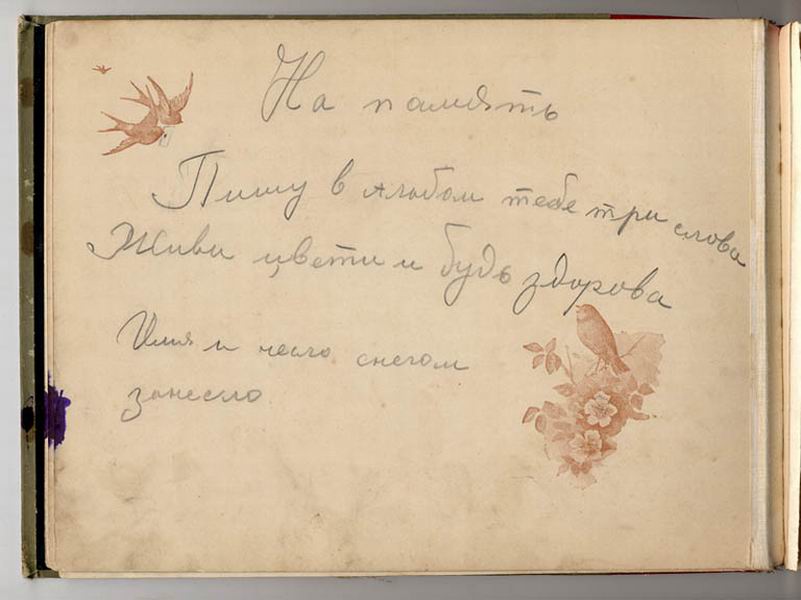 На память
Пишу в альбом тебе три слова
Живи цвети и будь здорова
Имя и число снегом
занесло